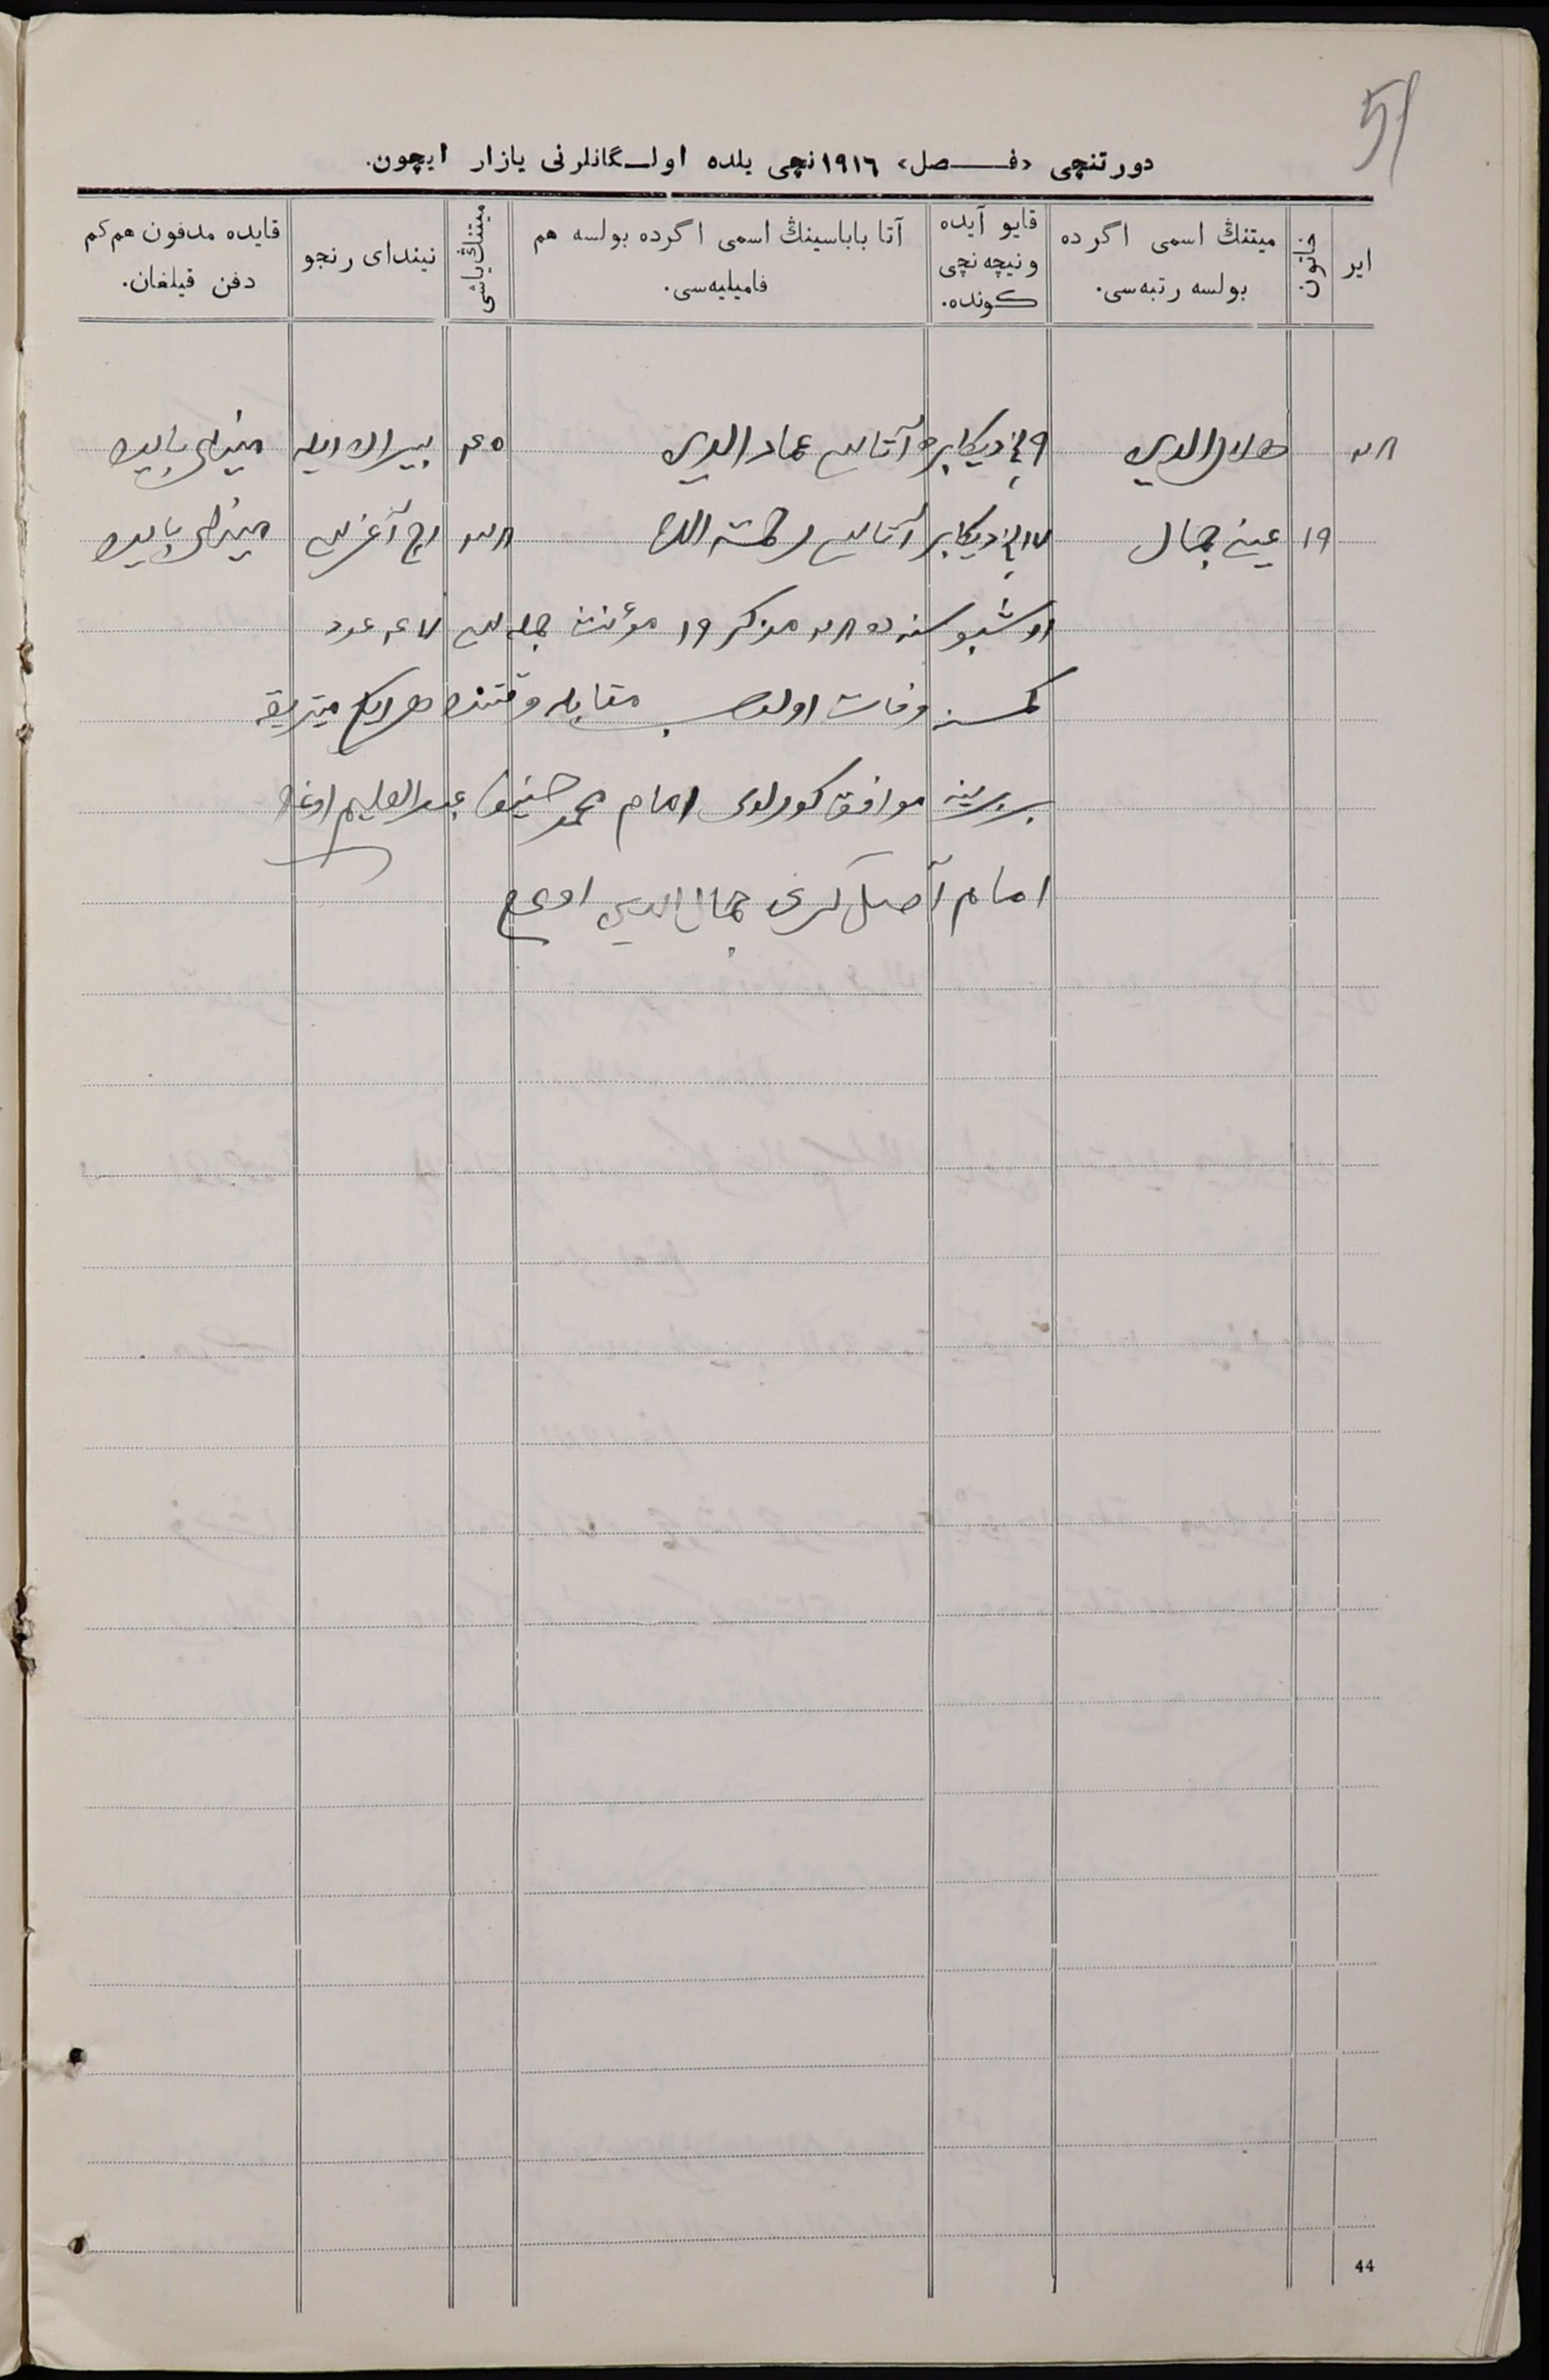 51
دورتنچی «فصل» ١٩١٦نچی یلده اولـگانلرنی یازار ایچون.
ایر
خاتون
میتنڭ اسمی اگرده بولسه رتبه‌سی.
قایو آیده ونیچه نچی کونده.
آتا باباسینڭ اسمی اگرده بولسه هم فامیلیه‌سی.
میتننڭ یاشی
نیندای رنجو
قایده مدفون هم کم دفن قیلغان.
٢٨ هلال الدین ٩ نچی دیکابرده آتاسی عماد الدین ٤٥
١٩ عین جمال ١٧ نچی دیکابر آتاسی رحمة الله ٢٨ اچ آغریی
اوشبو سنه ده ٢٨ مذکر ١٩ مؤنث جمله سی ٤٧ عدد
کمسنه وفات اولوب مقابله وقتنده هر ایکی میتریقه
بربرینه موافق کورلدی امام محمد حنیف عبد العلیم اوغلی
امام آصیل کرای جمال الدین اوغلی
44